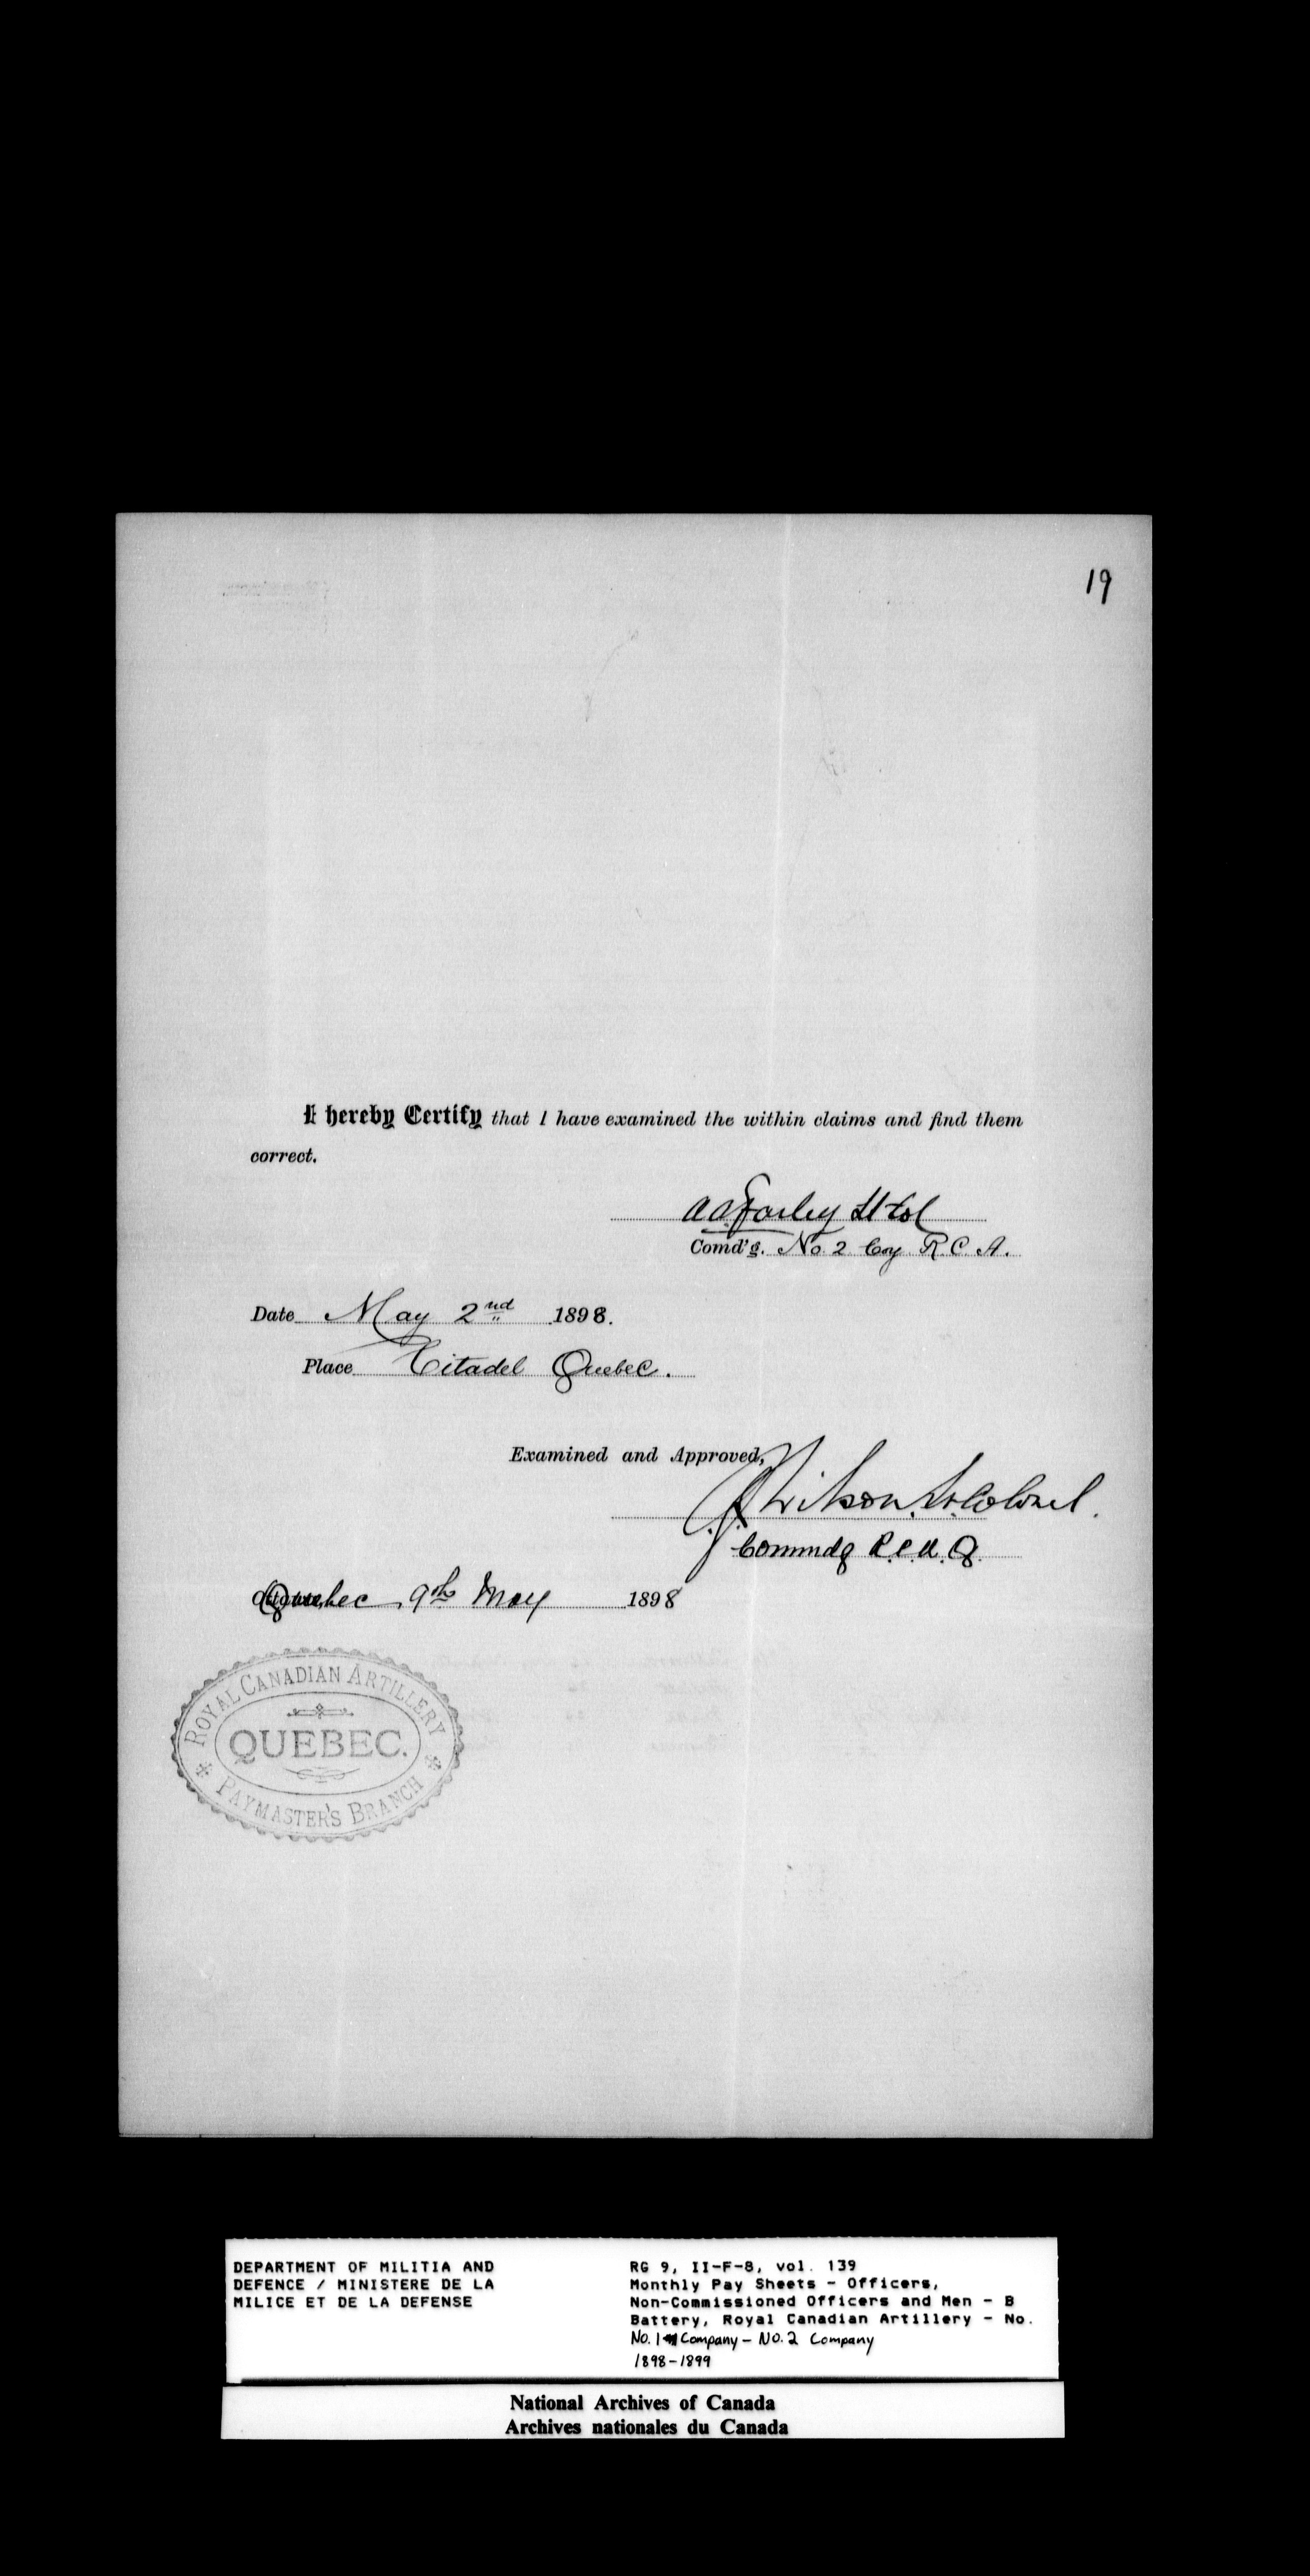 19
I hereby Certify that I have examined the within claims and find them
correct.
A A Farley Lt Col
Comd'g. No. 2 Coy R. C. A.
Date May 2nd 1898.
Place Citadel Quebec.
Examined and Approved,
J F Wilson Lt Colonel.
Commdg R.C.A. Q.
Quebec, 9th May 1898
ROYAL CANADIAN ARTILLERY
QUEBEC.
PAYMASTER'S BRANCH
DEPARTMENT OF MILITIA AND
DEFENCE / MINISTERE DE LA
MILICE ET DE LA DEFENSE
RG 9, II-F-8, vol. 139
Monthly Pay Sheets - Officers,
Non-Commissioned Officers and Men - B
Battery, Royal Canadian Artillery - No.
No. 1 Company - No. 2 Company
1898-1899
National Archives of Canada
Archives nationales du Canada